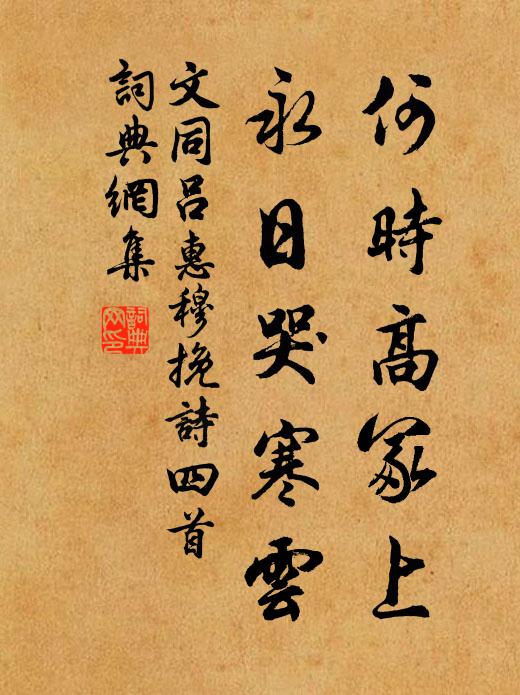 何時高冢上
永日哭寒雲
文同吕惠穆挽詩四首
詞典網集
詞典網印